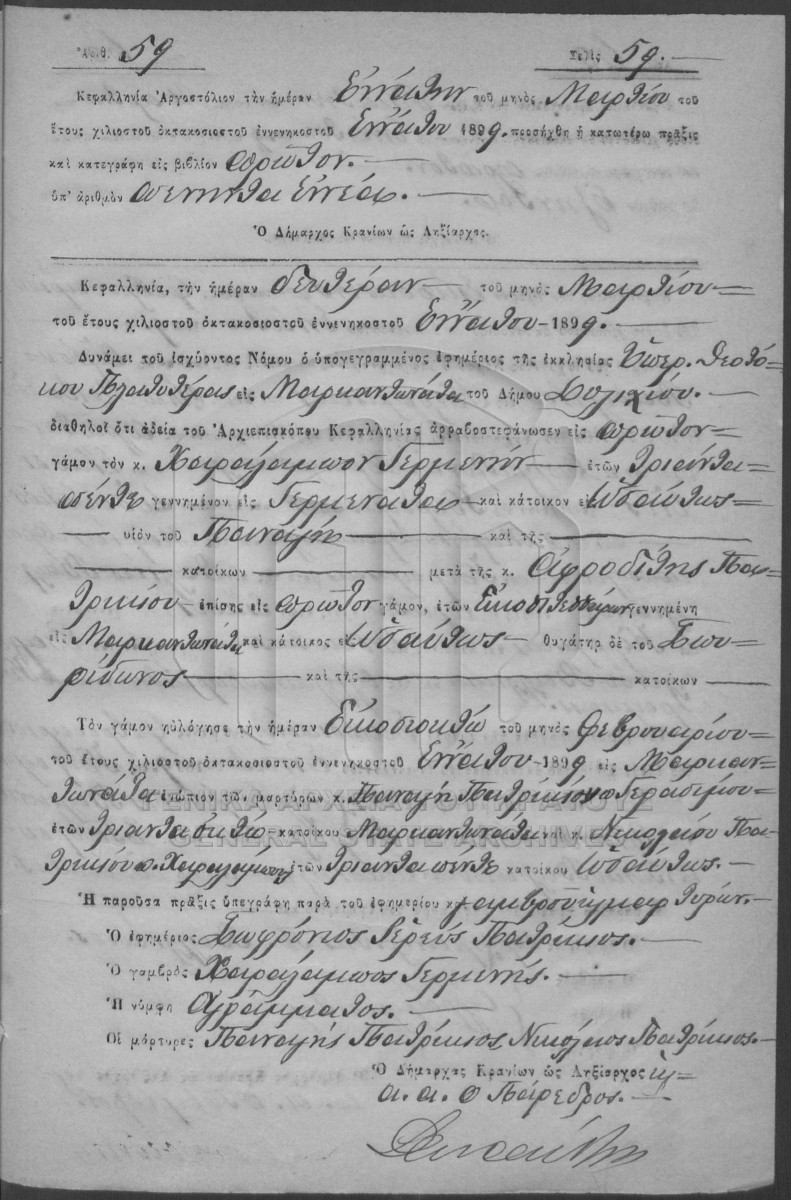 Ἀριθ. 59 Σελὶς 59.
Κεφαλληνία Ἀργοστόλιον τὴν ἡμέραν Ἐννάτην τοῦ μηνὸς Μαρτίου τοῦ
ἔτους χιλιοστοῦ ὀκτακοσιοστοῦ ἐννενηκοστοῦ Ἐννάτου 1899. προσήχθη ἡ κατωτέρω πρᾶξις
καὶ κατεγράφη εἰς βιβλίον πρῶτον.
ὑπ' ἀριθμὸν πενῆντα ἐννέα.
Ὁ Δήμαρχος Κρανίων ὡς Ληξίαρχος.
Κεφαλληνία, τὴν ἡμέραν δευτέραν τοῦ μηνὸς Μαρτίου
τοῦ ἔτους χιλιοστοῦ ὀκτακοσιοστοῦ ἐννενηκοστοῦ Ἐννάτου 1899.
Δυνάμει τοῦ ἰσχύοντος Νόμου ὁ ὑπογεγραμμένος ἐφημέριος τῆς ἐκκλησίας Ὑπερ. Θεοτό-
κου Πλατυτέρας εἰς Μαρκαντωνάτα τοῦ Δήμου Δολιχίου.
διαθηλοῖ ὅτι ἀδεία τοῦ Ἀρχιεπισκόπου Κεφαλληνίας ἀρραβοστεφάνωσεν εἰς πρῶτον
γάμον τὸν κ. Χαράλαμπον Γερμενῆν ἐτῶν τριάντα
πέντε γεννημένον εἰς Γερμενάτα καὶ κάτοικον εἰς ὡσαύτως
υἱὸν τοῦ Παναγῆ καὶ τῆς
κατοίκων μετὰ τῆς κ. Ἀφροδίτης Πα-
τρικίου ἐπίσης εἰς πρῶτον γάμον, ἐτῶν εἰκοσιτεσσάρων γεννημένη
εἰς Μαρκαντωνάτα καὶ κάτοικος εἰς ὡσαύτως θυγάτηρ δὲ τοῦ Σπυ-
ρίδωνος καὶ τῆς κατοίκων
Τὸν γάμον ηὐλόγησε τὴν ἡμέραν Εἰκοσιοκτώ τοῦ μηνὸς Φεβρουαρίου
τοῦ ἔτους χιλιοστοῦ ὀκτακοσιοστοῦ ἐννενηκοστοῦ Ἐννάτου 1899 εἰς Μαρκαν-
τωνάτα ἐνώπιον τῶν μαρτύρων κ. Παναγῆ Πατρικίου π. Γερασίμου
ἐτῶν τριάντα ὀκτὼ κατοίκου Μαρκαντωνάτα καὶ κ. Νικολάου Πα-
τρικίου π. Χαραλάμπους ἐτῶν τριάντα πέντε κατοίκου ὡσαύτως.
Ἡ παροῦσα πρᾶξις ὑπεγράφη παρὰ τοῦ ἐφημερίου καὶ
Ὁ ἐφημέριος Σωφρόνιος Ἱερεὺς Πατρίκιος.
Ὁ γαμβρὸς Χαράλαμπος Γερμενῆς.
Ἡ νύμφη Ἀγράμματος.
Οἱ μάρτυρες Παναγῆς Πατρίκιος Νικόλαος Πατρίκιος.
Ὁ Δήμαρχος Κρανίων ὡς Ληξίαρχος
α. α. ὁ Πάρεδρος.
ΓΕΝΙΚΑ ΑΡΧΕΙΑ ΤΟΥ ΚΡΑΤΟΥΣ
GENERAL STATE ARCHIVES